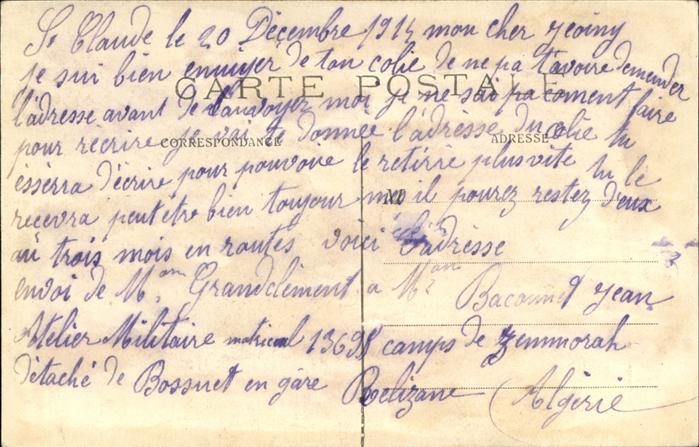 St Claude le 20 Décembre 1914 mon cher
je sui bien ennuyer de ton colie de ne pa t'avoire demender
CARTE POSTALE
l'adresse avant de l'anvoyez moi je ne sai pa coment faire
pour récrire je vai te donnée l'adresse du colie tu
CORRESPONDANCE
ADRESSE
éssèrra d'écrire pour pouvoire le retirré plus vite tu le
recevra peut être bien toujour mai il pourez restez deux
M
au trois mois en routes voici l'adresse
envoi de Mme Grandclément a Mr Jean
Atelier Militaire matricul camps de Zemmorah
détaché de Bossuet en gare Relizane (Algérie